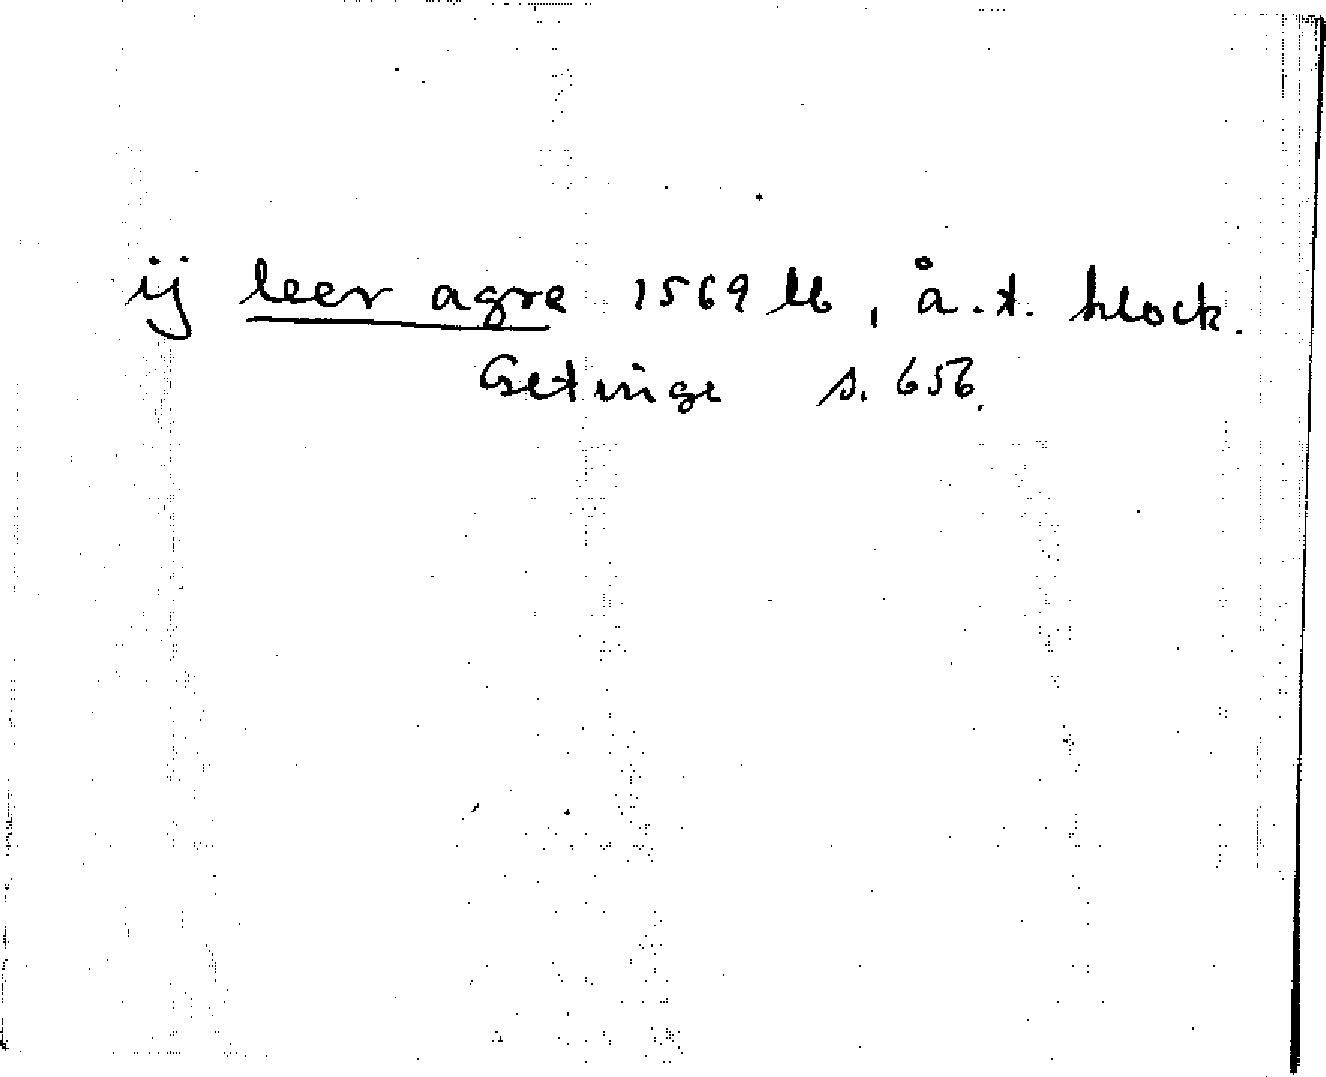 ij leer agre 1569 lb, å.t. klock.
Getinge s. 656.